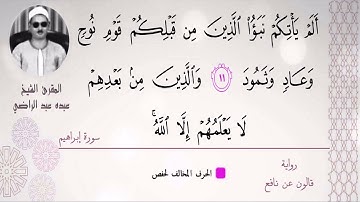 أَلَمْ يَأْتِكُمْ نَبَؤُاْ الَّذِينَ مِن قَبْلِكُمْ قَوْمِ نُوحٍ
وَعَادٍ وَثَمُودَ ١١ وَالَّذِينَ مِنۢ بَعْدِهِمْ
لَا يَعْلَمُهُمْ إِلَّا اللَّهُ
القارئ الشيخ
عبده عبد الراضي
سورة إبراهيم
الحرف المخالف لحفص
رواية
قالون عن نافع